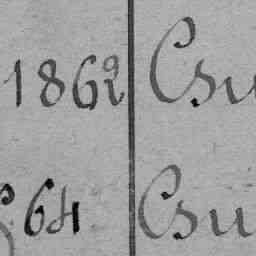 1862 Csu
64 Csu